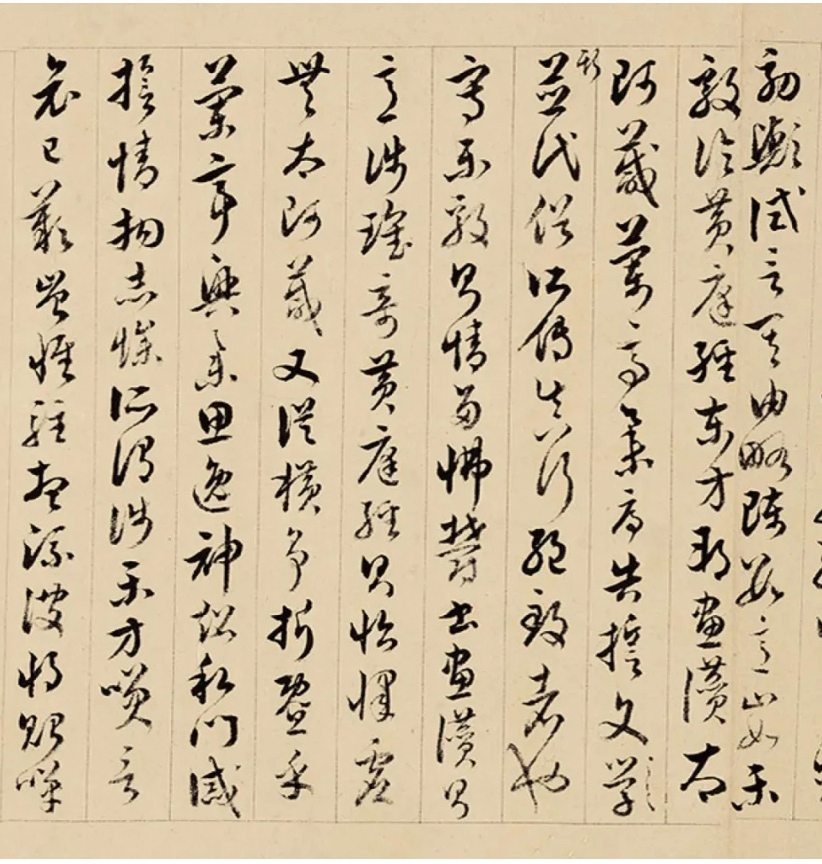 效歟試言其由略陳數意止如樂
毅論黃庭經東方朔畫讚太
師箴蘭亭集序告誓文學
斯並代俗所傳真行絕致者也
寫樂毅則情多怫鬱書畫讚則
意涉瑰奇黃庭經則怡懌虛
無太師箴又從橫爭折暨乎
蘭亭興集思逸神超私門誡
誓情拘志慘所謂涉樂方咲言
哀已歎豈惟駐想流波將貽嘽